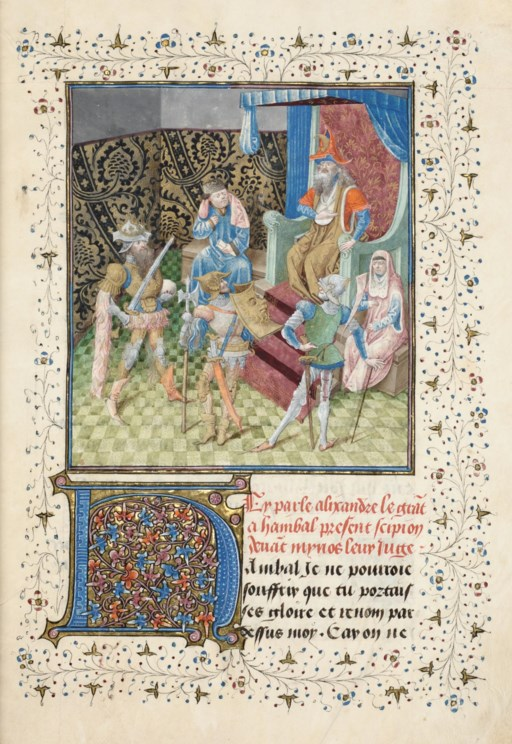 Cy parle alixandre le grāt
a hanibal present scipion
deuāt mynos leur iuge
Hanibal Je ne pourroie
souffrir que tu portais
ses gloire et renom par
dessus moy. Car on ne